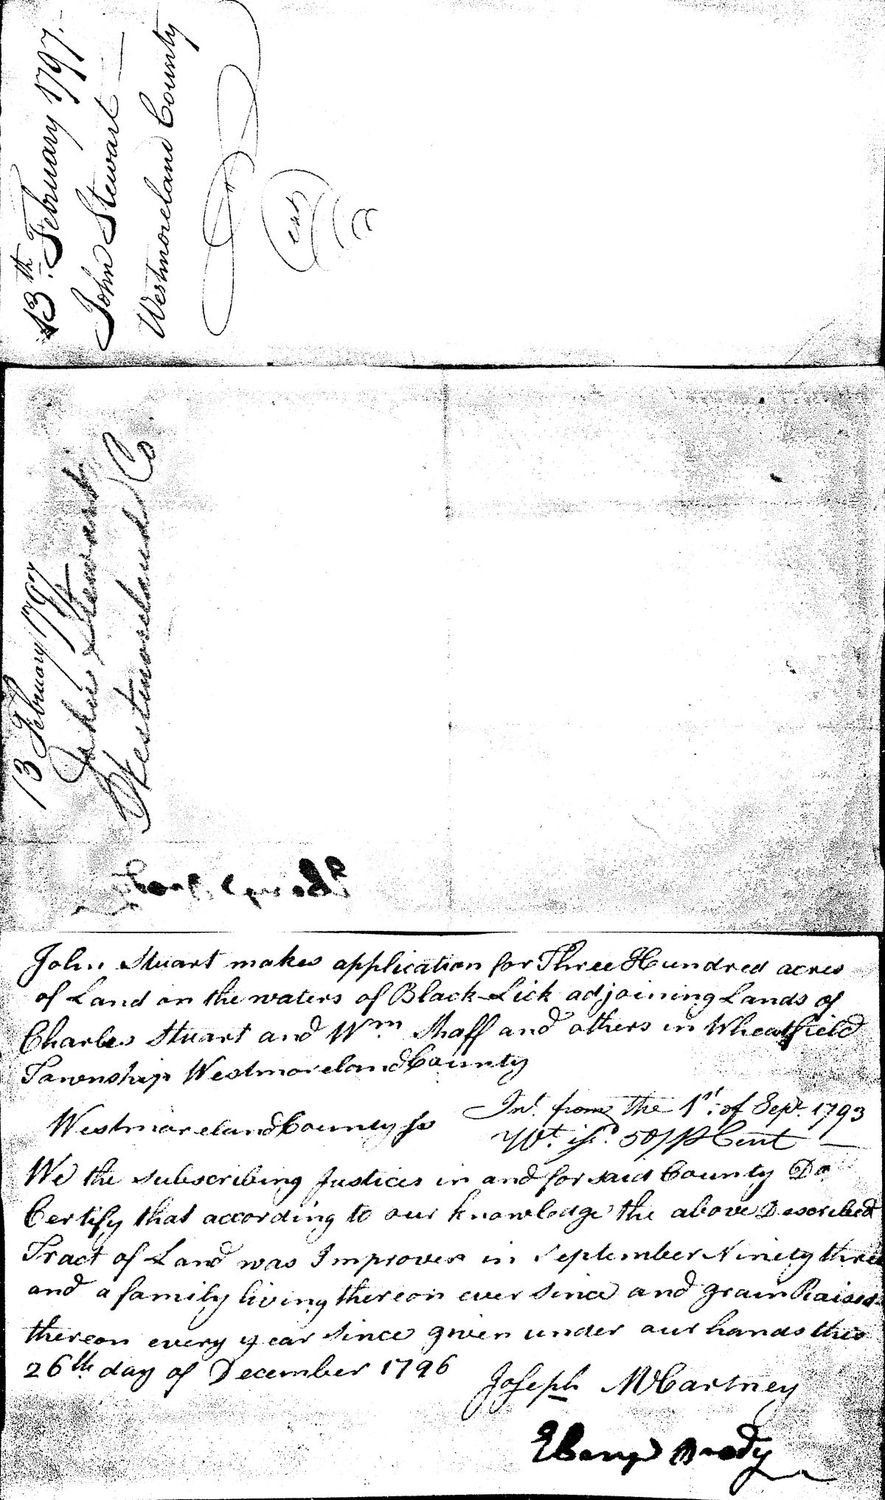 13th February 1797.
John Stewart
Westmoreland County
ent
13 February 1797
John Stewart
Westmoreland Co
John Stuart makes application for Three Hundred acres
of Land on the waters of Black Lick adjoining Lands of
Charles Stuart and Wm Shaff and others in Wheatfield
Township Westmoreland County
Westmoreland County ss
Int. from the 1st. of Sept. 1793
50 Cent
We the subscribing Justices in and for said County Do
Certify that according to our knowledge the above Described
Tract of Land was Improven in September Ninety three
and a family living thereon ever since and grain Raised
thereon every year since given under our hands this
26th day of December 1796
Joseph McCartney
Brady